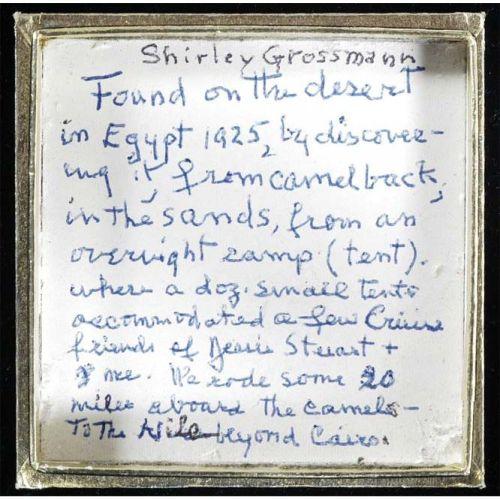 Shirley Grossmann
Found on the desert
in Egypt 1925, by discover-
ing it, from camel back,
in the sands, from an
overnight camp (tent).
where a doz. small tents
accommodated a few Cruise
friends of Jessie Stuart +
me. We rode some 20
miles aboard the camels -
To The Nile beyond Cairo.